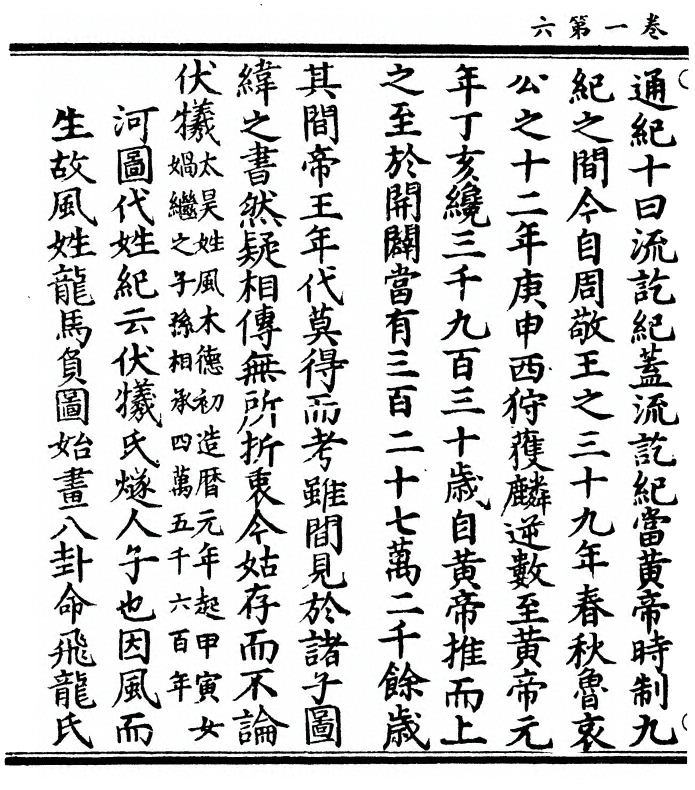 卷一第六
通紀十曰流訖紀蓋流訖紀當黃帝時制九
紀之間今自周敬王之三十九年春秋魯哀
公之十二年庚申西狩獲麟逆數至黃帝元
年丁亥纔三千九百三十歲自黃帝推而上
之至於開闢當有三百二十七萬二千餘歲
其間帝王年代莫得而考雖間見於諸子圖
緯之書然疑相傳無所折衷今姑存而不論
伏犧太昊姓風木德初造曆元年起甲寅女
媧繼之子孫相承四萬五千六百年
河圖代姓紀云伏犧氏燧人子也因風而
生故風姓龍馬負圖始畫八卦命飛龍氏